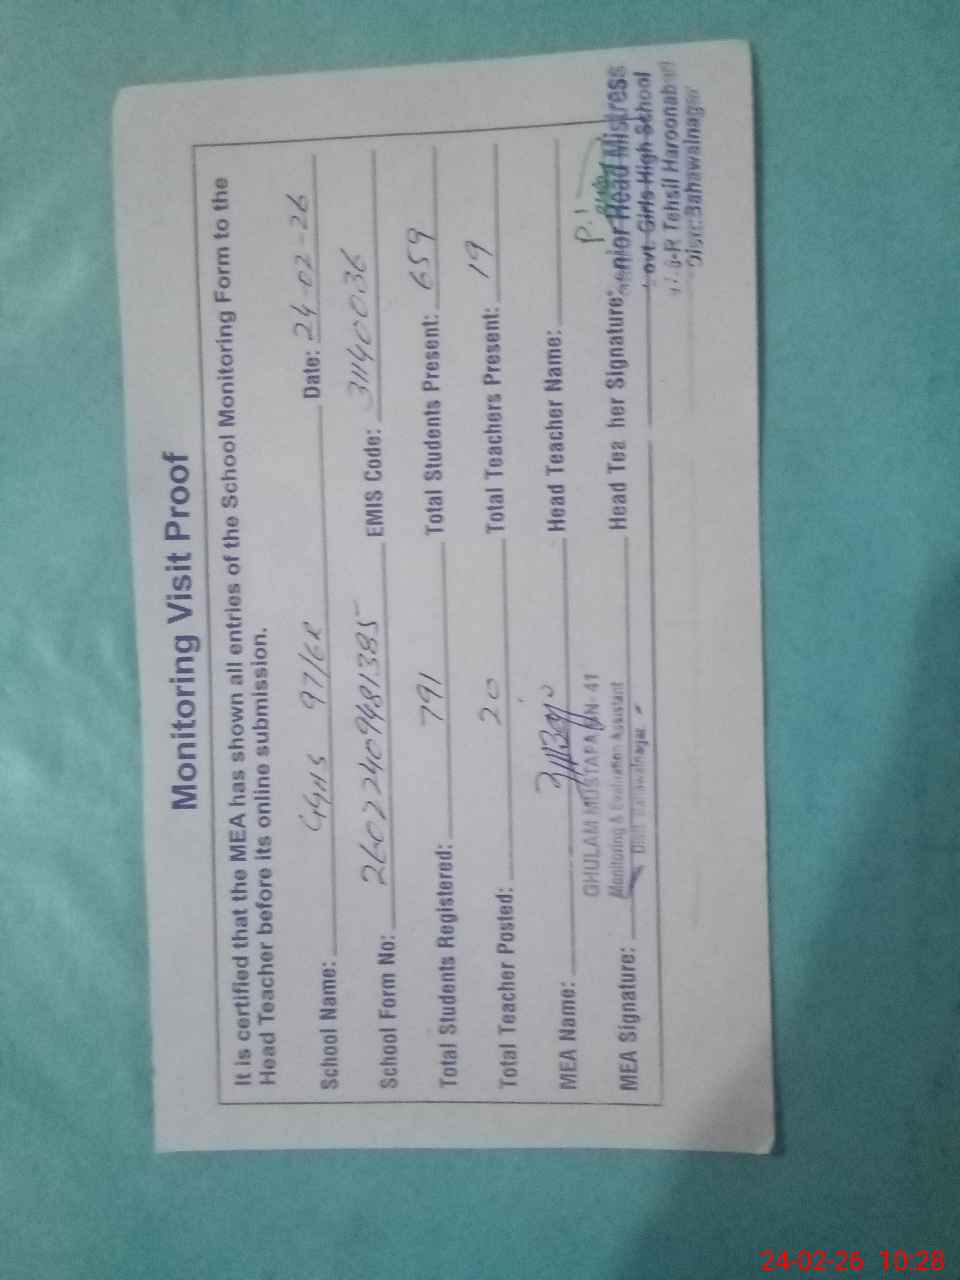 Monitoring Visit Proof
It is certified that the MEA has shown all entries of the School Monitoring Form to the
Head Teacher before its online submission.
School Name: GGHS 97/6R Date: 24-02-26
School Form No: 26022409481385 EMIS Code: 31140036
Total Students Registered: 791 Total Students Present: 659
Total Teacher Posted: 20 Total Teachers Present: 19
MEA Name: Head Teacher Name:
GHULAM MUSTAFA
Monitoring & Evaluation Assistant
Distt. Bahawalnagar
MEA Signature: Head Tea her Signature:
Senior Head Mistress
Govt. Girls High School
Tehsil Haroonabad
Distt: Bahawalnagar
24-02-26 10:28